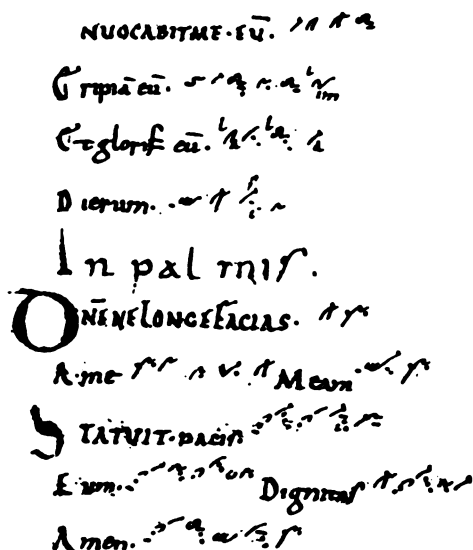 NUOCABITME·EŪ.
Eripiā eū.
Et glorif eū.
Dierum.
In palmis.
DNĒNELONGEFACIAS.
A·me Meam
STATUIT·pacis
Eum. Dignitas
Amen.